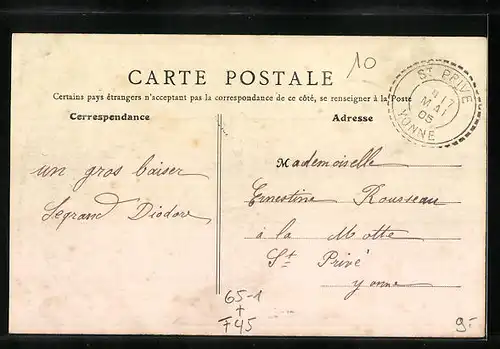 10
CARTE POSTALE
Certains pays étrangers n'acceptant pas la correspondance de ce côté, se renseigner à la Poste
Correspondance
Adresse
ST PRIVÉ
17
MAI
05
YONNE
un gros baiser
Legrand Diodore
Mademoiselle
Ernestine Rousseau
à la Motte
St Privé
Yonne
65-1
+
F45
9.-